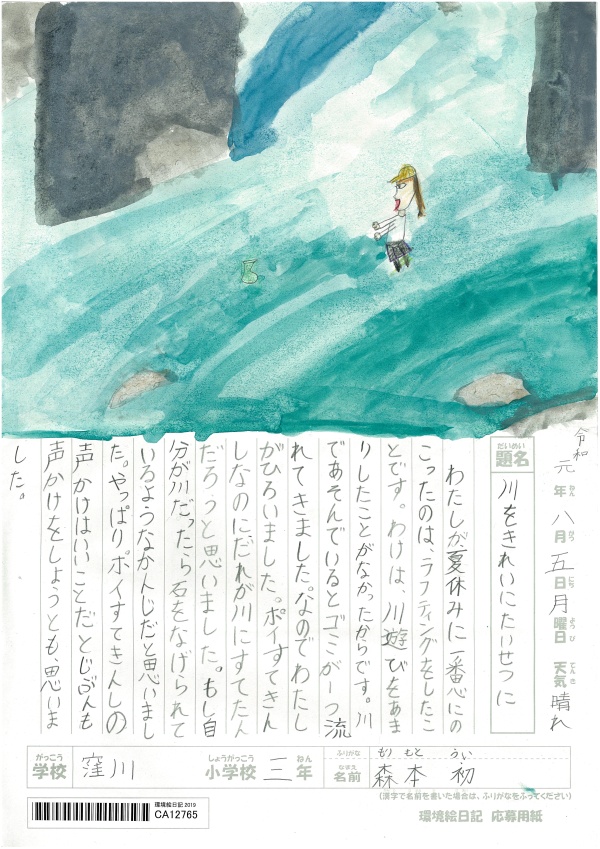 令和元年八月五日月曜日 天気晴れ
ねん がつ にち ようび てんき
だいめい
題名 川をきれいにたいせつに
わたしが夏休みに一番心にの
こったのは、ラフティングをしたこ
とです。わけは、川遊びをあま
りしたことがなかったからです。川
であそんでいるとゴミが一つ流
れてきました。なのでわたし
がひろいました。ポイすてきん
しなのにだれが川にすてたん
だろうと思いました。もし自
分が川だったら石をなげられて
いるようなかんじだと思いまし
た。やっぱりポイすてきんしの
声かけはいいことだとじぶんも
声かけをしようとも、思いま
した。
がっこう しょうがっこう ねん
学校 窪川 小学校 三年
ふりがな もり もと うい
なまえ
名前 森本 初
(漢字で名前を書いた場合は、ふりがなをふってください)
環境絵日記 2019
CA12765
環境絵日記 応募用紙